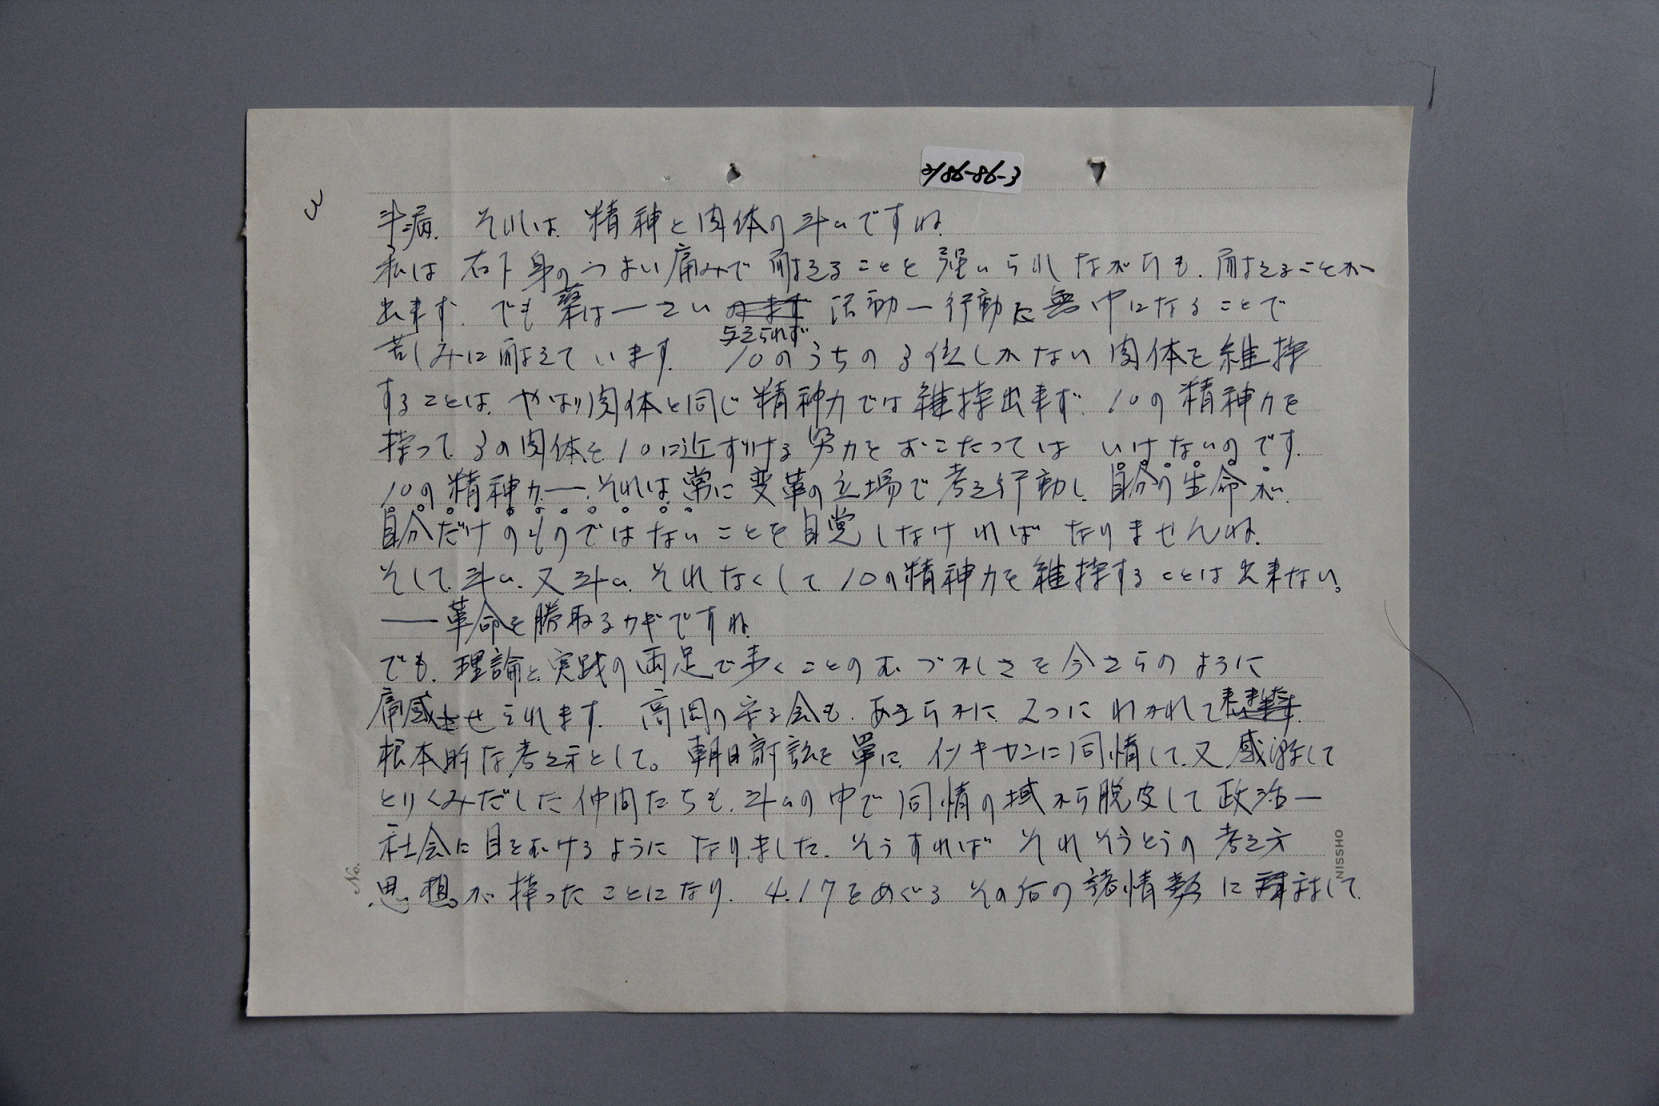 2186-86-3
3
斗病. それは. 精神と肉体の斗いですね.
私は 右下身のつよい痛みで 耐えることを 強いられながらも. 耐えることが
出来ます. でも 薬は一さい 与えられず 活動一行動に 無中になることで
苦しみに耐えています. 10のうちの3位しかない 肉体を維持
することは. やはり肉体と同じ精神力では維持出来ず. 10の精神力を
持って 3の肉体を10に近ずける努力を おこたっては いけないのです.
10の精神力 — それは 常に 変革の立場で 考え行動し. 自分の生命が.
自分だけのものではないことを自覚しなければ なりませんね.
そして. 斗い. 又斗い. それなくして 10の精神力を維持することは出来ない。
— 革命を勝取るカギですね.
でも. 理論と実践の両足で歩くことのむづかしさを今さらのように
痛感させられます. 高岡の守る会も. あきらかに 2つにわかれて来ました.
根本的な考え方として。朝日訴訟を 単に. インキャンに同情して. 又. 感激して
とりくみだした仲間たちも. 斗いの中で 同情の域から脱皮して 政治一
社会に目をむけるように なりました. そうすれば それそうとうの 考え方
思想が持ったことになり. 4.17をめぐる その后の 諸情勢に 対して.
No.
NISSHO